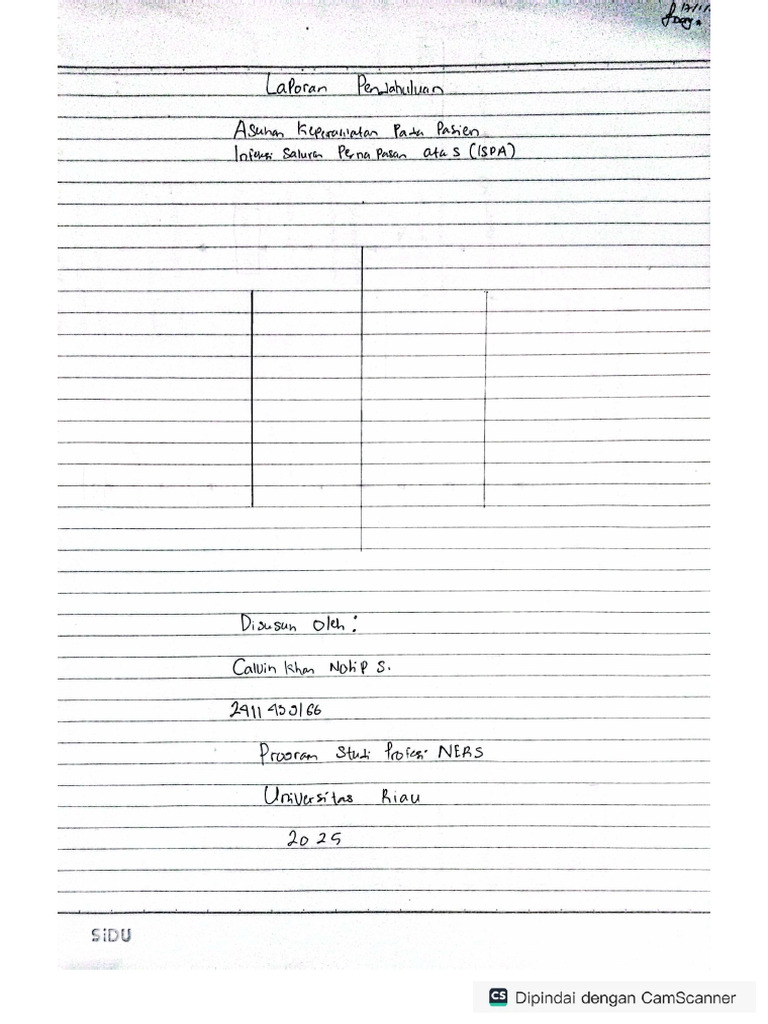 Laporan Pendahuluan
Asuhan Keperawatan Pada Pasien
Infeksi Saluran Pernapasan atas (ISPA)
Disusun Oleh:
Calvin Khan S.
Program Studi Profesi NERS
Universitas Riau
2025
SiDU
CS Dipindai dengan CamScanner